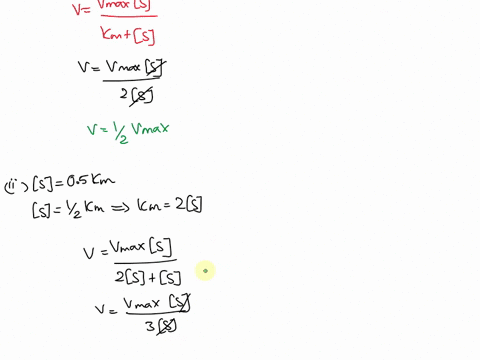 V = Vmax [S]
Km + [S]
V = Vmax [S]
2 [S]
V = 1/2 Vmax
(ii) [S] = 0.5 Km
[S] = 1/2 Km ⟹ Km = 2[S]
V = Vmax [S]
2[S] + [S]
V = Vmax [S]
3 [S]